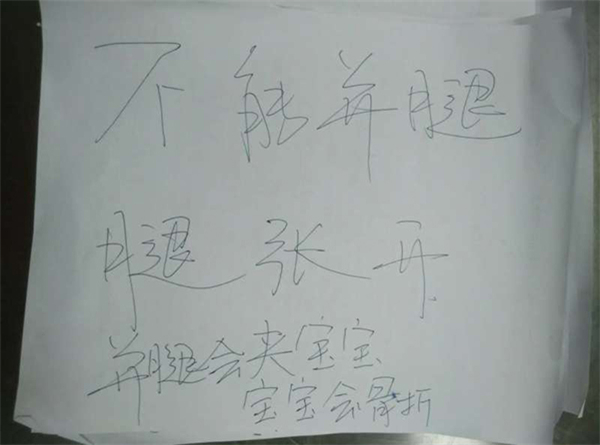 不能并腿
腿张开
并腿会夹宝宝
宝宝会骨折